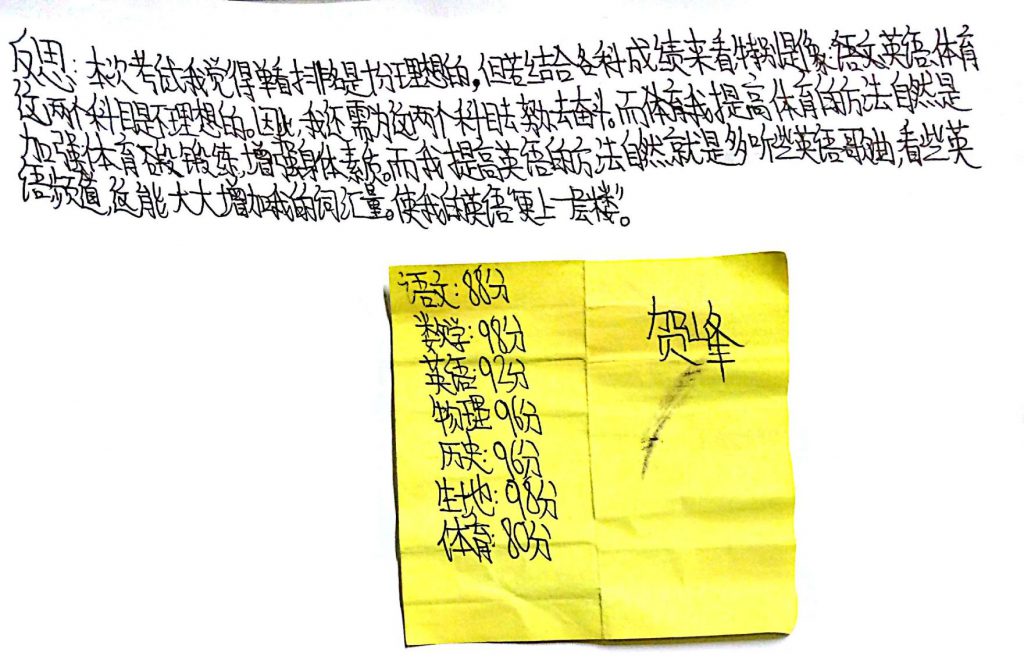 反思：本次考试我觉得单看排名是十分理想的，但若结合各科成绩来看特别是像：语文、英语、体育
这两个科目是不理想的。因此，我还需为这两个科目去努力去奋斗。而体育我提高体育的方法自然是
加强体育锻炼，增强身体素质。而我提高英语的方法自然就是多听些英语歌曲，看些英
语频道，这能大大增加我的词汇量。使我的英语“更上一层楼”。
语文：88分
数学：98分
英语：92分
物理：96分
历史：96分
生地：98分
体育：80分
贺峰